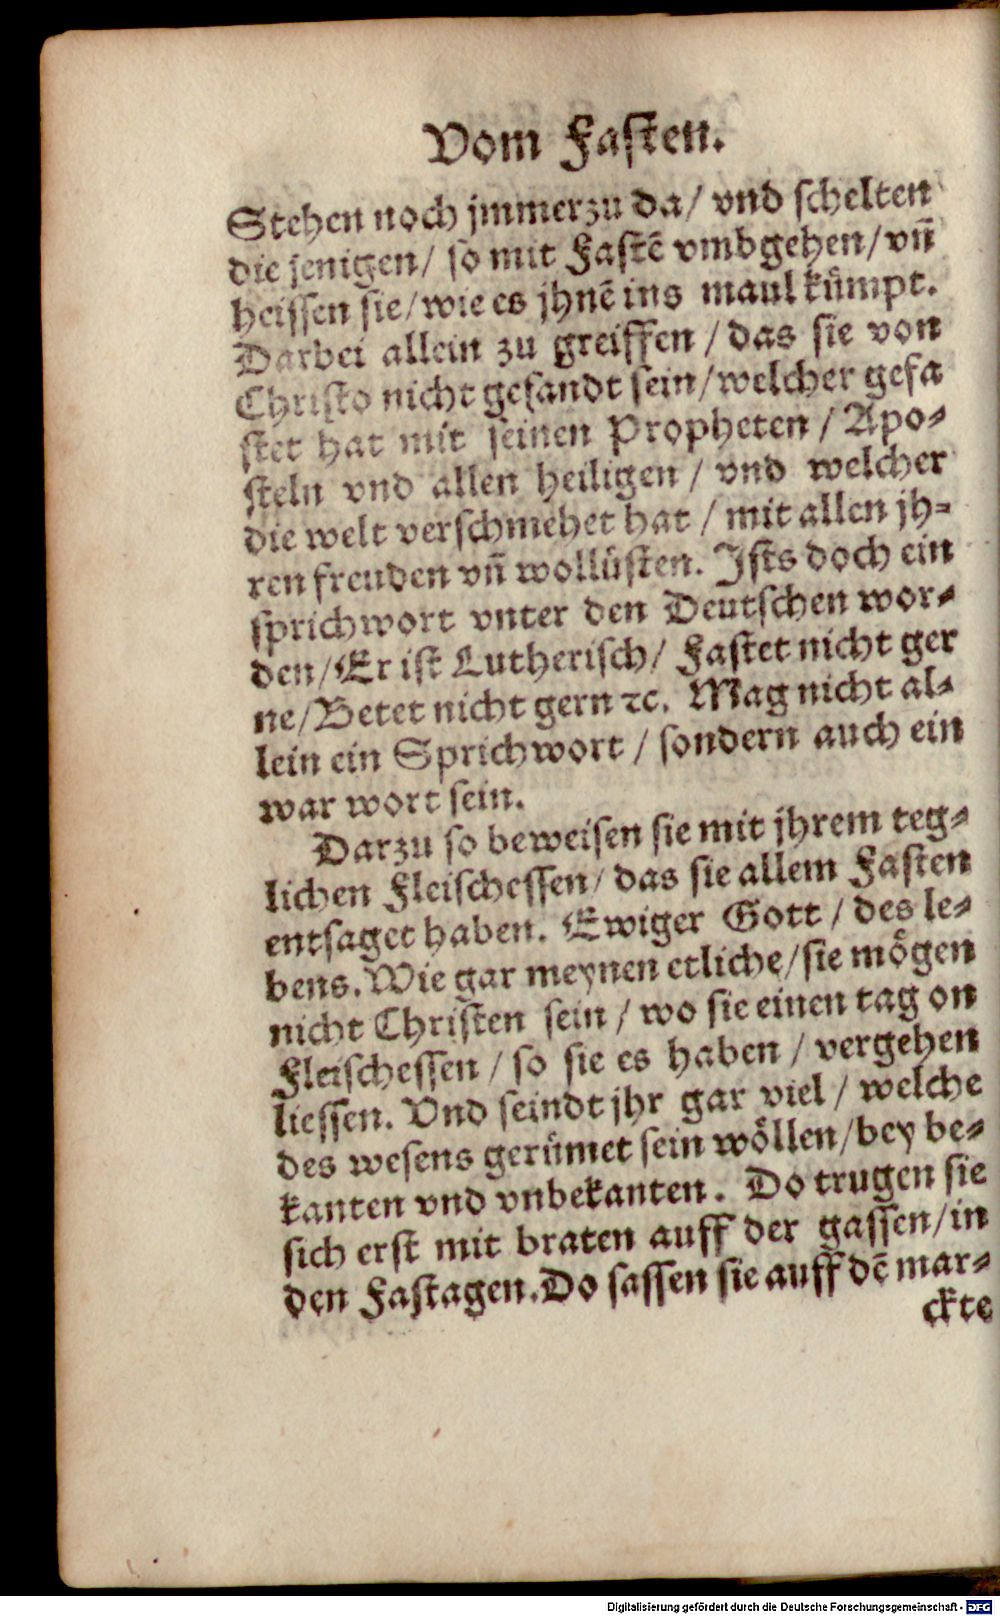 Vom Fasten.
Stehen noch jmmerzu da/ vnd schelten
die jenigen/ so mit Fastē vmbgehen/ vñ
heissen sie/ wie es jhnē ins maul kümpt.
Darbei allein zu greiffen / das sie von
Christo nicht gesandt sein/ welcher gefa
stet hat mit seinen Propheten / Apo-
steln vnd allen heiligen / vnd welcher
die welt verschmehet hat / mit allen jh-
ren freuden vñ wollüsten. Ists doch ein
sprichwort vnter den Deutschen wor-
den/ Er ist Lutherisch/ Fastet nicht ger
ne/ Betet nicht gern ꝛc. Mag nicht al-
lein ein Sprichwort / sondern auch ein
war wort sein.
Darzu so beweisen sie mit jhrem teg-
lichen Fleischessen/ das sie allem Fasten
entsaget haben. Ewiger Gott / des le-
bens. Wie gar meynen etliche/ sie mögen
nicht Christen sein / wo sie einen tag on
Fleischessen / so sie es haben / vergehen
liessen. Vnd seindt jhr gar viel / welche
des wesens gerümet sein wöllen/ bey be-
kanten vnd vnbekanten. Do trugen sie
sich erst mit braten auff der gassen/ in
den Fastagen. Do sassen sie auff dē mar-
ckte
Digitalisierung gefördert durch die Deutsche Forschungsgemeinschaft - DFG